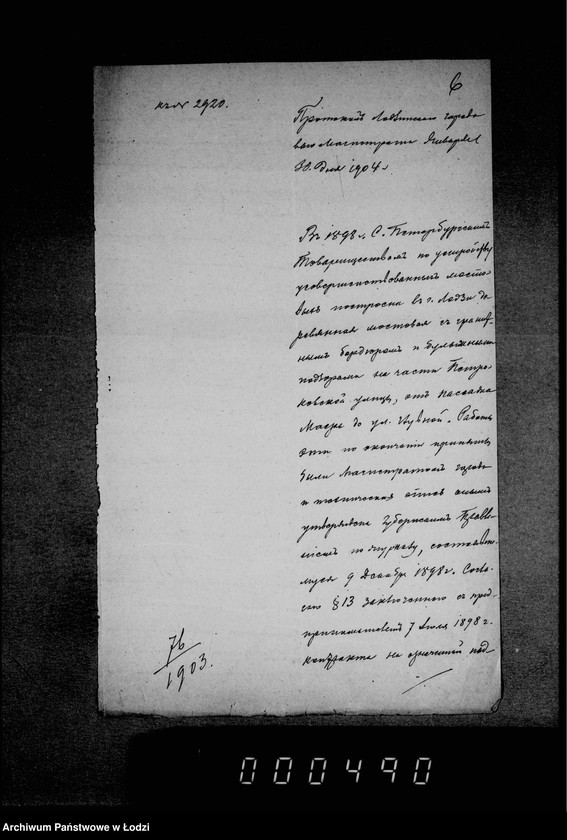 6
к № 2920.
Протоколъ Лодзинскаго городо
ваго Магистрата Января
дня 1904 г.
Въ 1898 г. С. Петербургскимъ
Товариществомъ по устройству
усовершенствованныхъ мосто
выхъ построена въ г. Лодзи де
ревянная мостовая съ гранит
нымъ бордюромъ и булыжными
на части Петро
ковской улицы, отъ пассажа
Маера до ул. Работы
эти по окончаніи приняты
были Магистратомъ города
и техническая опись
утверждена Губернскимъ Правле
ніемъ по журналу, состояв
муся 9 Декабря 1898 г. Соглас
но § 13 заключеннаго съ пред
принимателемъ 7 Іюля 1898 г.
контракта на означенный под
76
1903.
000490
Archiwum Państwowe w Łodzi